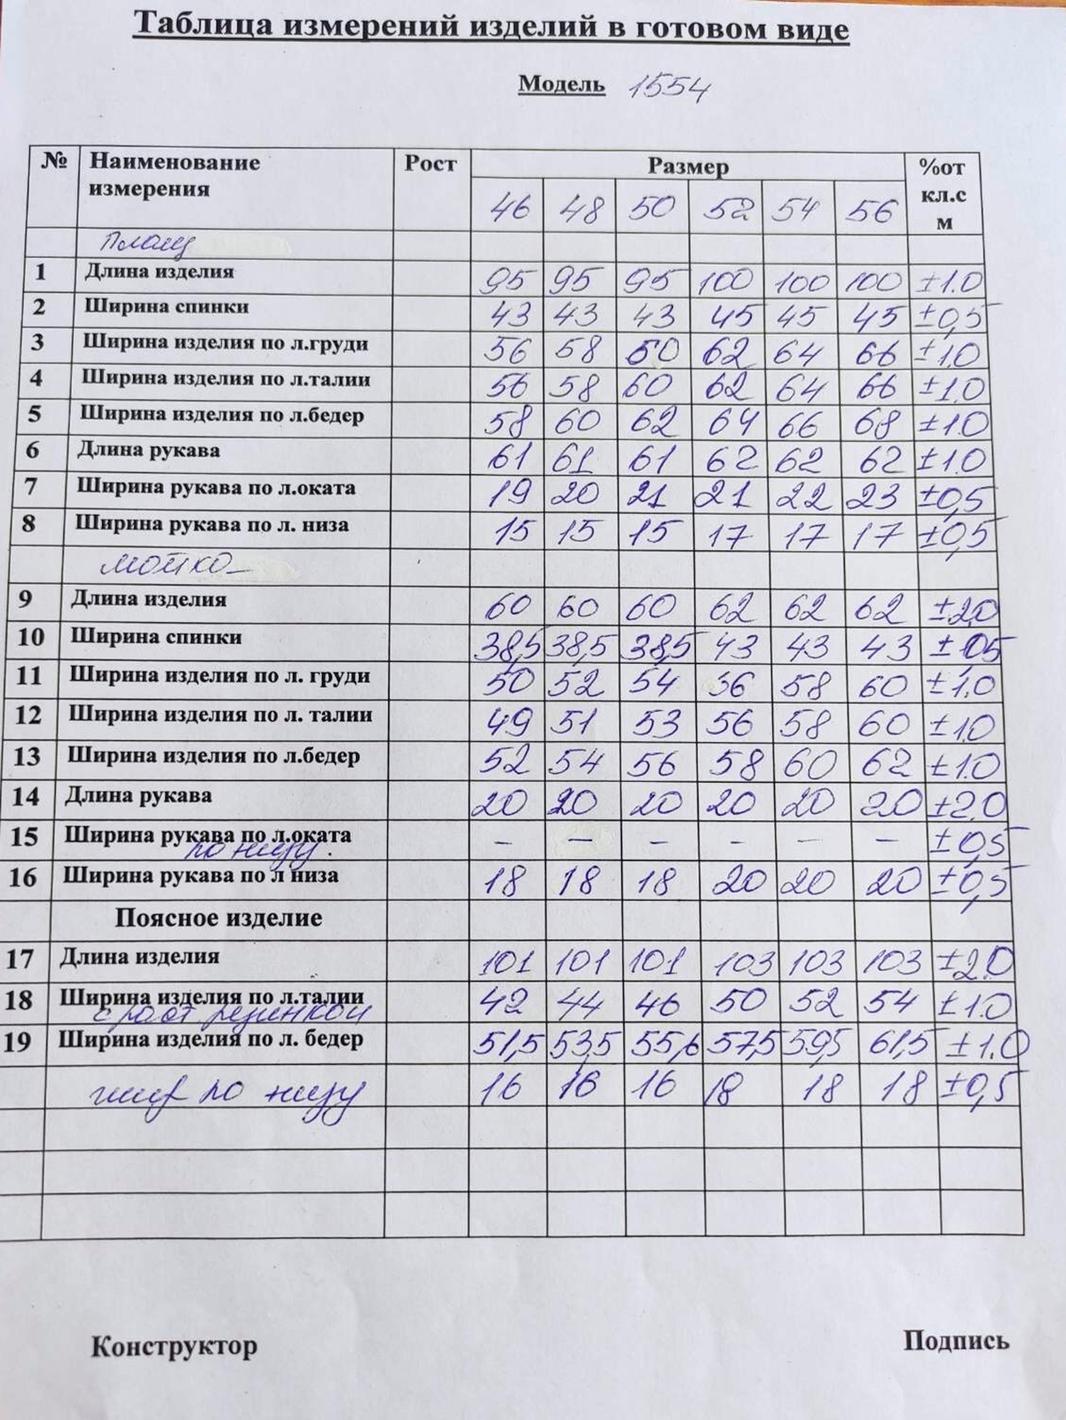 Таблица измерений изделий в готовом виде
Модель 1554
№ Наименование измерения Рост Размер %от кл.с м
46 48 50 52 54 56
Плащ
1 Длина изделия 95 95 95 100 100 100 ±1.0
2 Ширина спинки 43 43 43 45 45 45 ±0,5
3 Ширина изделия по л.груди 56 58 60 62 64 66 ±1.0
4 Ширина изделия по л.талии 56 58 60 62 64 66 ±1.0
5 Ширина изделия по л.бедер 58 60 62 64 66 68 ±1.0
6 Длина рукава 61 61 61 62 62 62 ±1.0
7 Ширина рукава по л.оката 19 20 21 21 22 23 ±0,5
8 Ширина рукава по л. низа 15 15 15 17 17 17 ±0,5
майка
9 Длина изделия 60 60 60 62 62 62 ±2.0
10 Ширина спинки 38,5 38,5 38,5 43 43 43 ±0,5
11 Ширина изделия по л. груди 50 52 54 56 58 60 ±1.0
12 Ширина изделия по л. талии 49 51 53 56 58 60 ±1.0
13 Ширина изделия по л.бедер 52 54 56 58 60 62 ±1.0
14 Длина рукава 20 20 20 20 20 20 ±2.0
15 Ширина рукава по л.оката – – – – – – ±0,5
по низу.
16 Ширина рукава по л низа 18 18 18 20 20 20 ±0,5
Поясное изделие
17 Длина изделия 101 101 101 103 103 103 ±2.0
18 Ширина изделия по л.талии 42 44 46 50 52 54 ±1.0
с раст резинкой
19 Ширина изделия по л. бедер 51,5 53,5 55,6 57,5 59,5 61,5 ±1.0
шир по низу 16 16 16 18 18 18 ±0,5
Конструктор Подпись